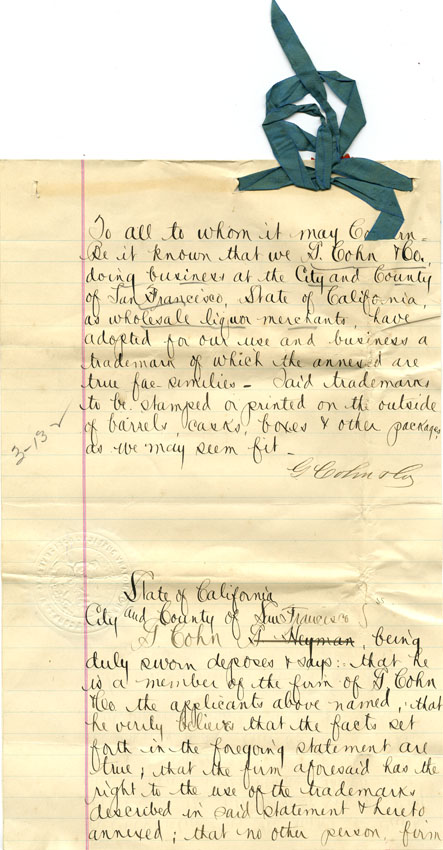 To all to whom it may Concern -
Be it known that we G. Cohn & Co.,
doing business at the City and County
of San Francisco, State of California,
as wholesale liquor merchants, have
adopted for our use and business a
trademark of which the annexed are
true fac-similies - Said trademarks
to be stamped or printed on the outside
of barrels, casks, boxes & other packages
as we may seem fit -
3-13
G Cohn & Co
State of California
City and County of San Francisco } ss
G Cohn G. Heyman, being
duly sworn deposes & says: that he
is a member of the firm of G. Cohn
& Co the applicants above named, that
he verily believes that the facts set
forth in the foregoing statement are
true; that the firm aforesaid has the
right to the use of the trademarks
described in said statement & hereto
annexed; that no other person, firm